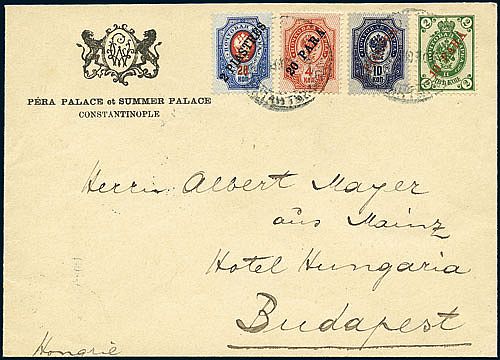 PÉRA PALACE et SUMMER PALACE
CONSTANTINOPLE
2 PIASTRES
20
КОП
20 PARA
4
КОП
10
КОП
2
2
Herrn Albert Mayer
aus Mainz
Hotel Hungaria
Budapest
Hongrie